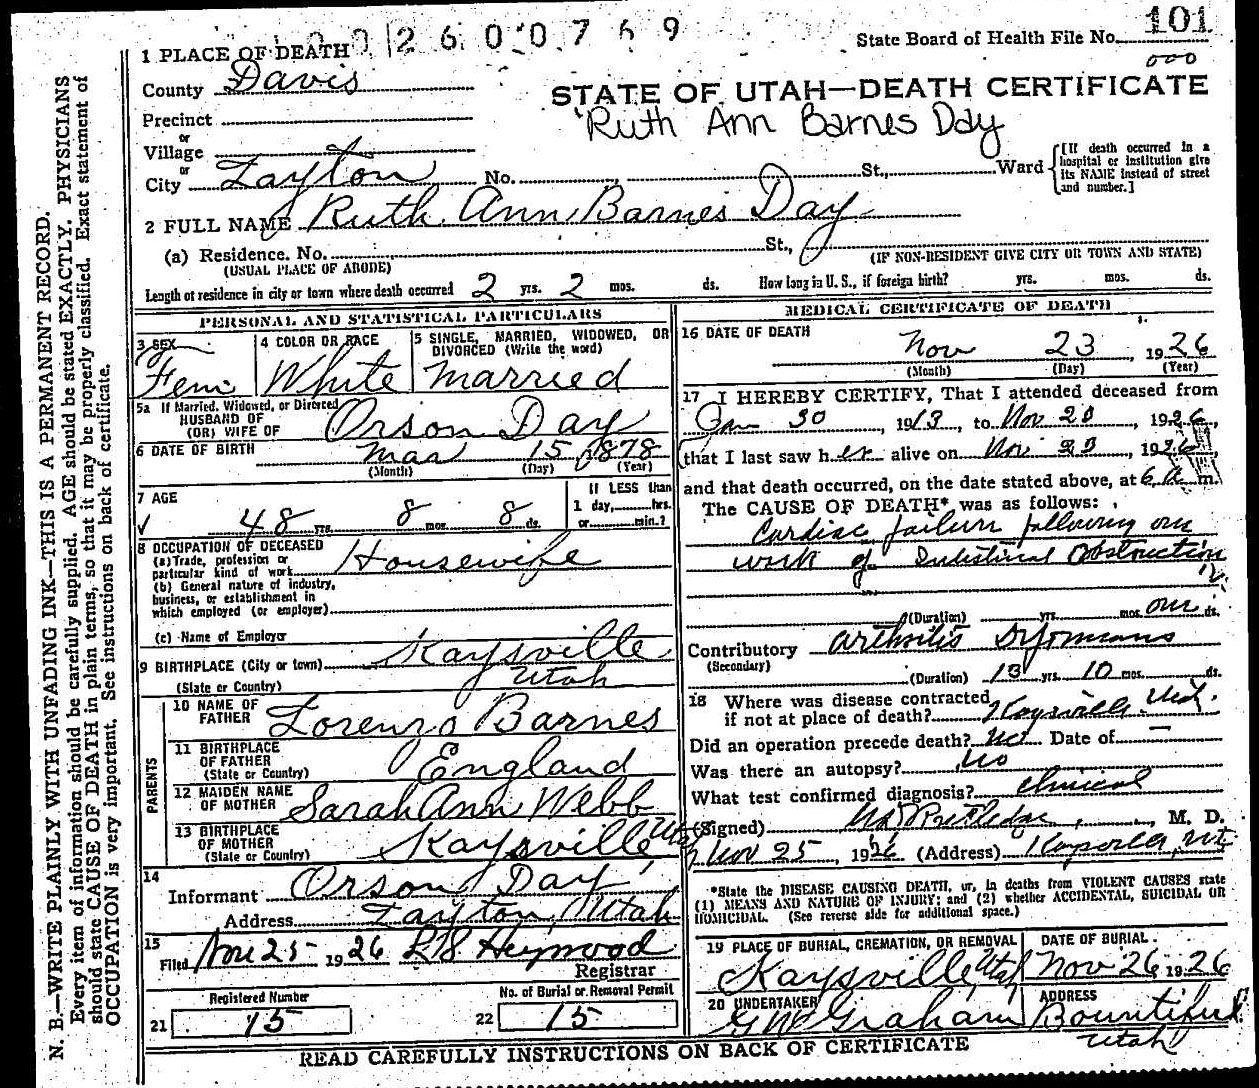 2600769
State Board of Health File No. 101
000
1 PLACE OF DEATH
County Davis
STATE OF UTAH—DEATH CERTIFICATE
Ruth Ann Barnes Day
Precinct
or
Village
or
City Layton No. St., Ward
[If death occurred in a hospital or institution give its NAME instead of street and number.]
2 FULL NAME Ruth Ann Barnes Day
(a) Residence. No. St.,
(USUAL PLACE OF ABODE) (IF NON-RESIDENT GIVE CITY OR TOWN AND STATE)
Length of residence in city or town where death occurred 2 yrs. 2 mos. ds. How long in U. S., if foreign birth? yrs. mos. ds.
PERSONAL AND STATISTICAL PARTICULARS
3 SEX Fem
4 COLOR OR RACE White
5 SINGLE, MARRIED, WIDOWED, OR DIVORCED (Write the word) Married
5a If Married, Widowed, or Divorced
HUSBAND OF
(OR) WIFE OF Orson Day
6 DATE OF BIRTH Mar 15 1878
(Month) (Day) (Year)
7 AGE
48 yrs. 8 mos. 8 ds.
If LESS than 1 day, hrs. or min.?
8 OCCUPATION OF DECEASED
(a) Trade, profession or particular kind of work Housewife
(b) General nature of industry, business, or establishment in which employed (or employer)
(c) Name of Employer
9 BIRTHPLACE (City or town) Kaysville
(State or Country) Utah
PARENTS
10 NAME OF FATHER Lorenzo Barnes
11 BIRTHPLACE OF FATHER (State or Country) England
12 MAIDEN NAME OF MOTHER Sarah Ann Webb
13 BIRTHPLACE OF MOTHER (State or Country) Kaysville Utah
14
Informant Orson Day
Address Layton, Utah
15
Filed Nov 25 1926 Heywood
Registrar
Registered Number
21 15
No. of Burial or Removal Permit
22 15
MEDICAL CERTIFICATE OF DEATH
16 DATE OF DEATH
Nov 23, 1926
(Month) (Day) (Year)
17 I HEREBY CERTIFY, That I attended deceased from
Jan 30 1913, to Nov 1926,
that I last saw her alive on Nov 1926,
and that death occurred, on the date stated above, at 6 m.
The CAUSE OF DEATH* was as follows:
Cardiac failure following one
week of Intestinal Obstruction
(Duration) yrs. mos. ds.
Contributory Arthritis Deformans
(Secondary)
(Duration) 13 yrs. 10 mos. ds.
18 Where was disease contracted
if not at place of death? Kaysville Utah.
Did an operation precede death? No Date of —
Was there an autopsy? No
What test confirmed diagnosis? clinical
(Signed) Rutledge, M. D.
Nov 25, 1926 (Address) Kaysville, Ut
*State the DISEASE CAUSING DEATH, or, in deaths from VIOLENT CAUSES state
(1) MEANS AND NATURE OF INJURY; and (2) whether ACCIDENTAL, SUICIDAL OR
HOMICIDAL. (See reverse side for additional space.)
19 PLACE OF BURIAL, CREMATION, OR REMOVAL
Kaysville, Utah
DATE OF BURIAL
Nov 26 1926
20 UNDERTAKER
G W Graham
ADDRESS
Bountiful
Utah
READ CAREFULLY INSTRUCTIONS ON BACK OF CERTIFICATE
N. B.—WRITE PLAINLY WITH UNFADING INK—THIS IS A PERMANENT RECORD.
Every item of information should be carefully supplied. AGE should be stated EXACTLY. PHYSICIANS
should state CAUSE OF DEATH in plain terms, so that it may be properly classified. Exact statement of
OCCUPATION is very important. See instructions on back of certificate.